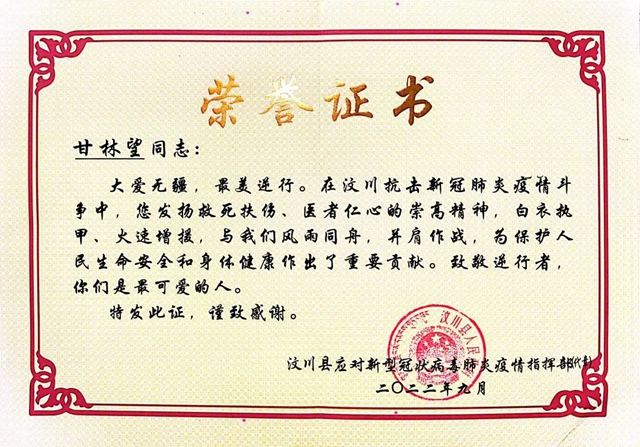 荣誉证书
甘林望同志：
大爱无疆，最美逆行。在汶川抗击新冠肺炎疫情斗
争中，您发扬救死扶伤、医者仁心的崇高精神，白衣执
甲、火速增援，与我们风雨同舟，并肩作战，为保护人
民生命安全和身体健康作出了重要贡献。致敬逆行者，
你们是最可爱的人。
特发此证，谨致感谢。
汶川县人民
汶川县应对新型冠状病毒肺炎疫情指挥部(代章)
二〇二二年九月